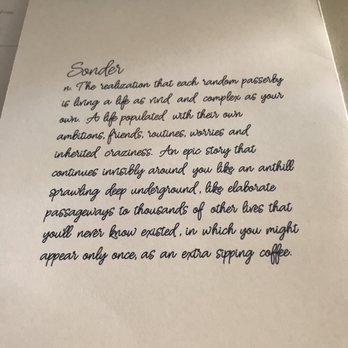 Sonder
n. The realization that each random passerby
is living a life as vivid and complex as your
own. A life populated with their own
ambitions, friends, routines, worries and
inherited craziness. An epic story that
continues invisibly around you like an anthill
sprawling deep underground, like elaborate
passageways to thousands of other lives that
you'll never know existed, in which you might
appear only once, as an extra sipping coffee.